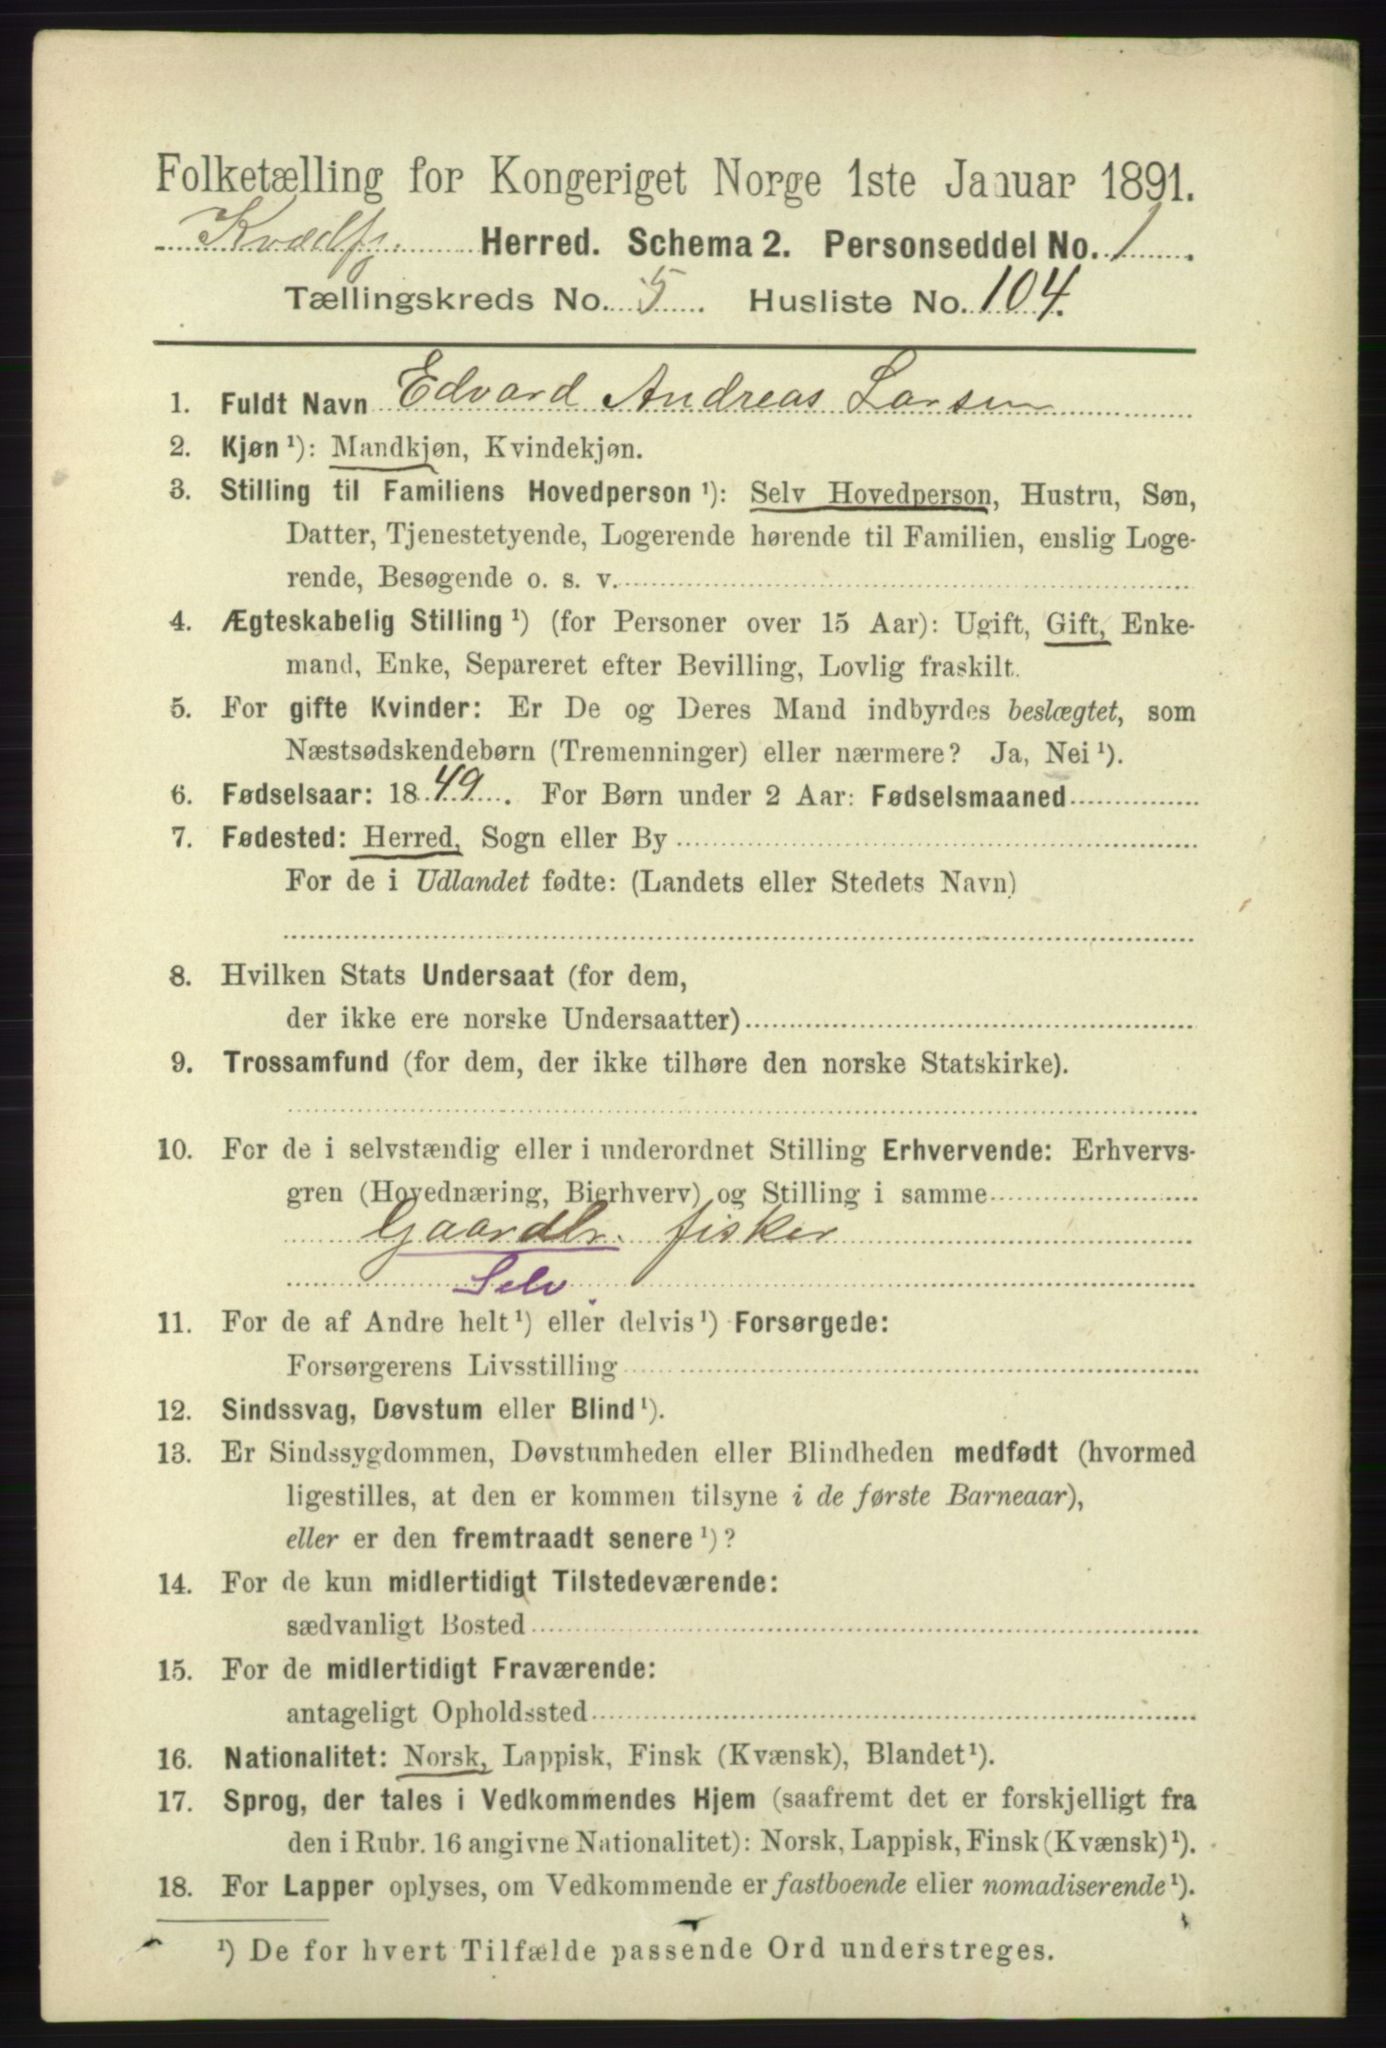 Folketælling for Kongeriget Norge 1ste Januar 1891.
Kvædfj. Herred. Schema 2. Personseddel No. 1.
Tællingskreds No. 5. Husliste No. 104.
1. Fuldt Navn Edvard Andreas Larsen
2. Kjøn ¹): Mandkjøn, Kvindekjøn.
3. Stilling til Familiens Hovedperson ¹): Selv Hovedperson, Hustru, Søn,
Datter, Tjenestetyende, Logerende hørende til Familien, enslig Loge-
rende, Besøgende o. s. v.
4. Ægteskabelig Stilling ¹) (for Personer over 15 Aar): Ugift, Gift, Enke-
mand, Enke, Separeret efter Bevilling, Lovlig fraskilt.
5. For gifte Kvinder: Er De og Deres Mand indbyrdes beslægtet, som
Næstsødskendebørn (Tremenninger) eller nærmere? Ja, Nei ¹).
6. Fødselsaar: 1849. For Børn under 2 Aar: Fødselsmaaned
7. Fødested: Herred, Sogn eller By
For de i Udlandet fødte: (Landets eller Stedets Navn)
8. Hvilken Stats Undersaat (for dem,
der ikke ere norske Undersaatter)
9. Trossamfund (for dem, der ikke tilhøre den norske Statskirke).
10. For de i selvstændig eller i underordnet Stilling Erhvervende: Erhvervs-
gren (Hovednæring, Bierhverv) og Stilling i samme
Gaardbr. fisker
Selv.
11. For de af Andre helt ¹) eller delvis ¹) Forsørgede:
Forsørgerens Livsstilling
12. Sindssvag, Døvstum eller Blind ¹).
13. Er Sindssygdommen, Døvstumheden eller Blindheden medfødt (hvormed
ligestilles, at den er kommen tilsyne i de første Barneaar),
eller er den fremtraadt senere ¹)?
14. For de kun midlertidigt Tilstedeværende:
sædvanligt Bosted
15. For de midlertidigt Fraværende:
antageligt Opholdssted
16. Nationalitet: Norsk, Lappisk, Finsk (Kvænsk), Blandet ¹).
17. Sprog, der tales i Vedkommendes Hjem (saafremt det er forskjelligt fra
den i Rubr. 16 angivne Nationalitet): Norsk, Lappisk, Finsk (Kvænsk) ¹).
18. For Lapper oplyses, om Vedkommende er fastboende eller nomadiserende ¹).
¹) De for hvert Tilfælde passende Ord understreges.